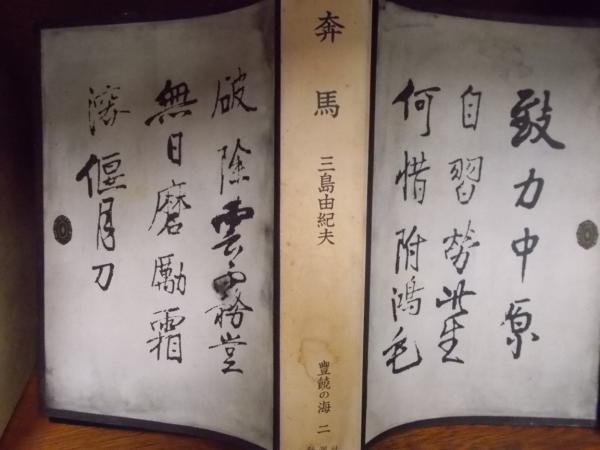 致力中原
自習勞此生
何惜附鴻毛
奔馬
三島由紀夫
豐饒の海 二
破除雲霧豈
無日磨勵霜
深偃月刀